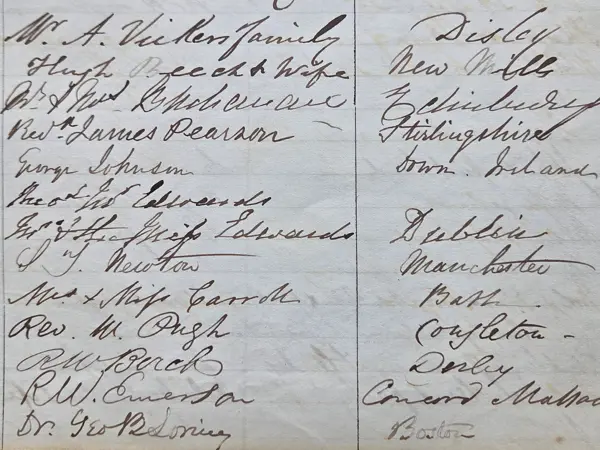 Mr. A. Vickers family Disley
Hugh Beech & Wife New Mills
Mr & Mrs Buchanan Edinburgh
Revd James Pearson Stirlingshire
George Johnson Down. Ireland
Edwards
Miss Edwards Dublin
Newton Manchester
Mrs & Miss Carroll Bath
Rev. M. Pugh Congleton -
R W Birch Derby
R.W. Emerson Concord Massa
Dr. Geo B Loring Boston